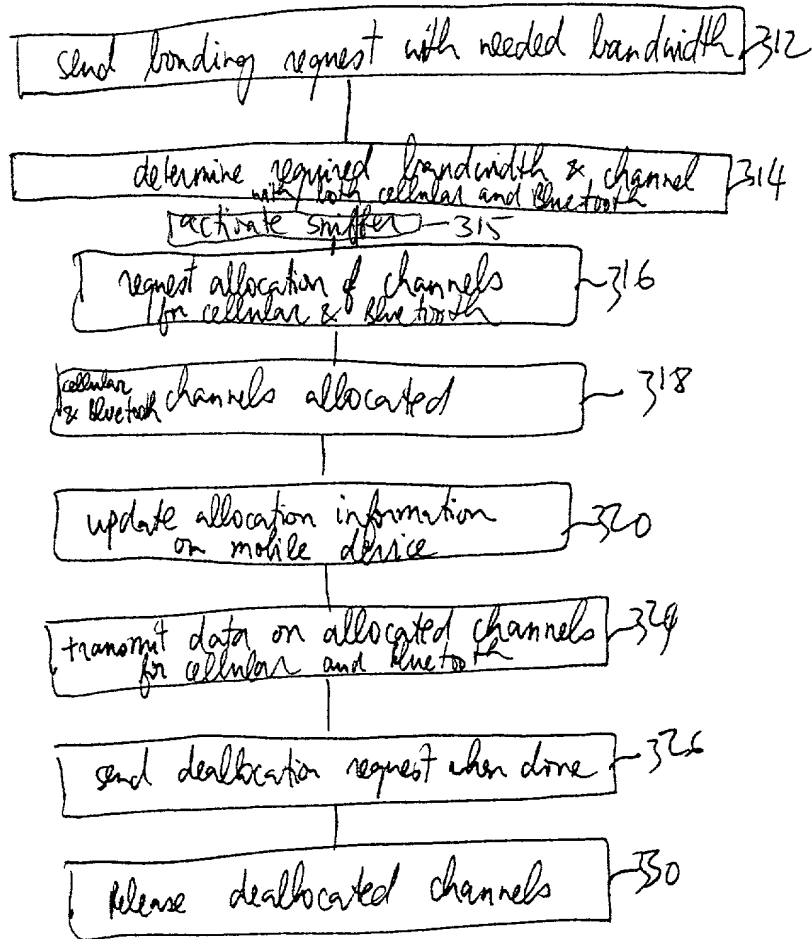 send bonding request with needed bandwidth 312
determine required bandwidth & channel 314
with both cellular and Bluetooth
activate sniffer 315
request allocation of channels 316
for cellular & Bluetooth
cellular
& Bluetooth channels allocated 318
update allocation information 320
on mobile device
transmit data on allocated channels 324
for cellular and Bluetooth
send deallocation request when done 326
Release deallocated channels 330